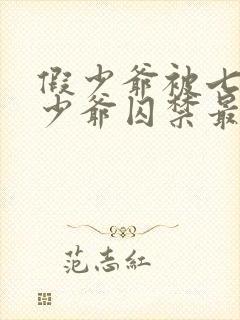 假少爷被七
少爷囚禁最
范志红